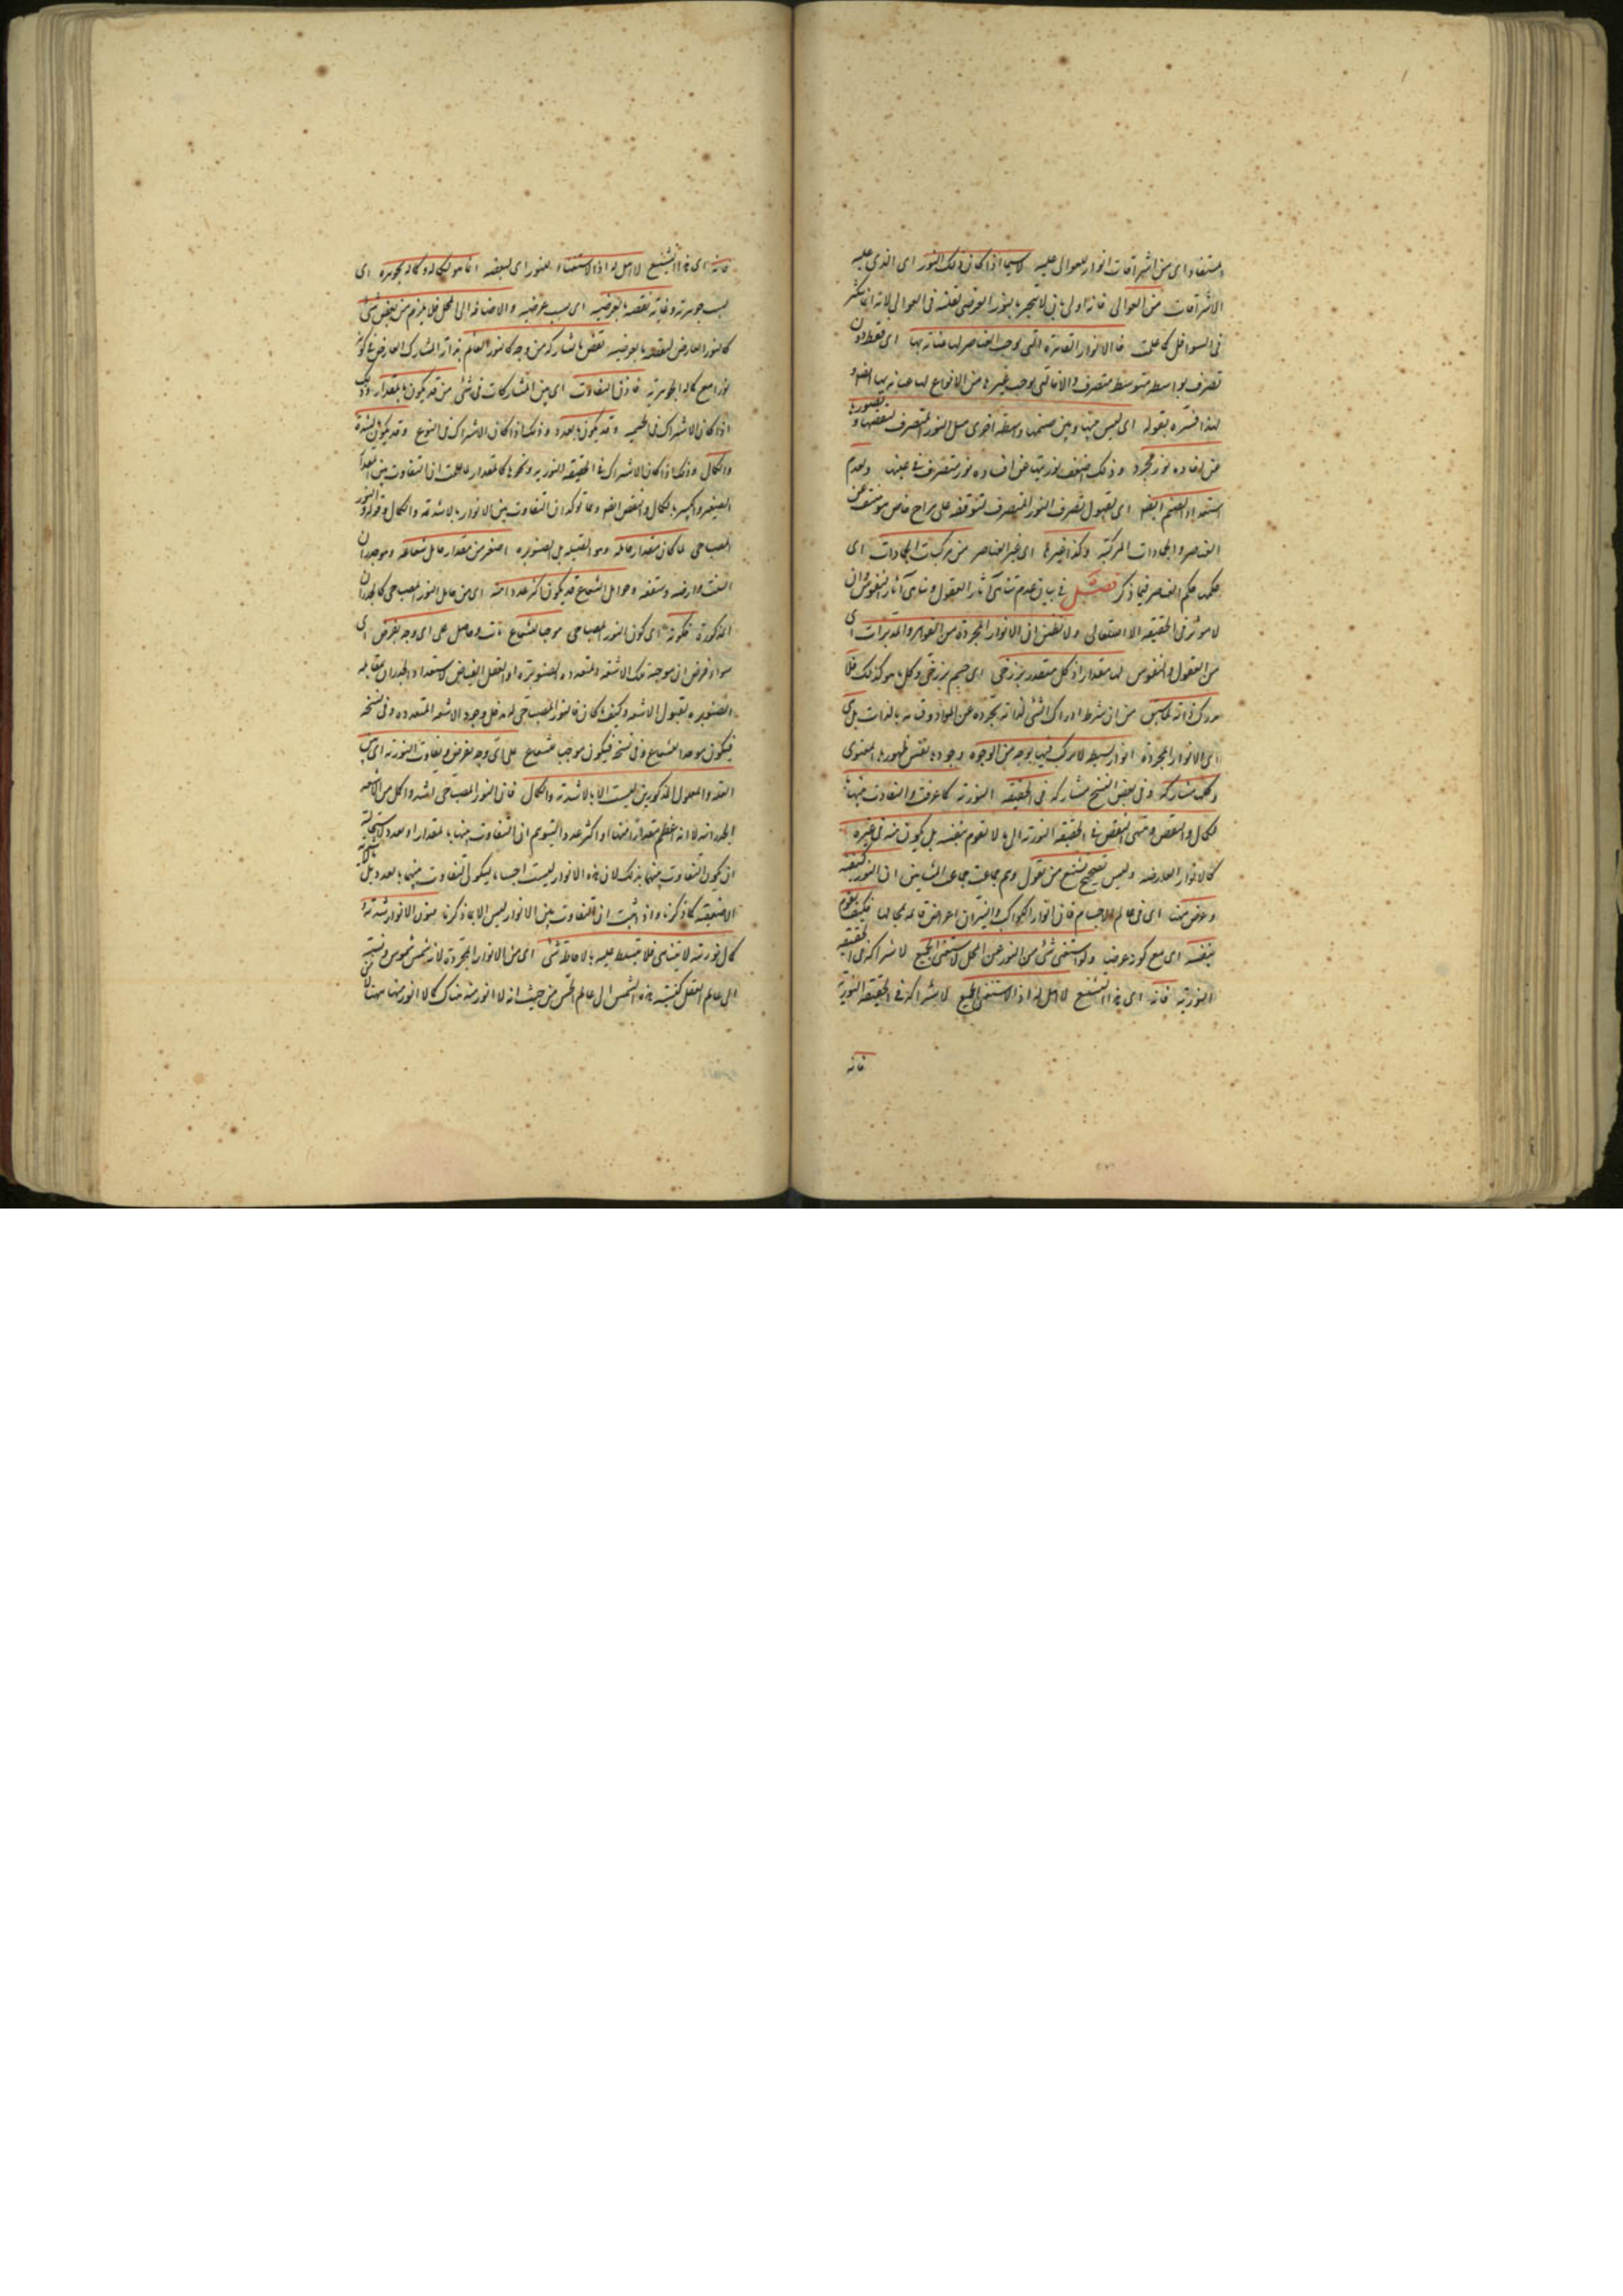 مستفاد ای من اشراقات انوار العوالی علیه لاسیما اذا کان ذلک النور ای الذی علیه
الاشراقات من العوالی فانه اولی بان لا
فی السوافل کما علمت فالانوار القاهرة التی توجب العناصر لها عنایة بها ای فقط دون
تصرف بواسطة متوسط متصرف والا فالتی یوجب غیرها من الانواع لها عنایة بها ایضا و
لهذا فسره بقوله ای لیس بینها و بین صنمها واسطة اخری مثل النور المتصرف لنقصها و قصورها
عن افادة نور مجرد و ذلک لضعف نوریتها عن افادة نور متصرف فی عینها ولعدم
استعداد الصنم ایضا ای لقبول تصرف النور المتصرف لتوقفه علی مزاج خاص هو منتف عن
العناصر والجمادات المرکبة وکذا غیرها ای غیر العناصر من مرکبات الجمادات ای
حکمه حکم العناصر فیما ذکر فصل فی بیان عدم تناهی آثار العقول و تناهی آثار النفوس وان
لا مؤثر فی الحقیقه الا الله تعالی ولا تظنن ان الانوار المجردة من القواهر والمدبرات ای
من العقول والنفوس لها مقدار اذ کل متقدر برزخی ای جسم برزخی وکل ما هو کذلک فلا
یدرک ذاته لما بین من ان شرط ادراک الشئ لذاته تجرده عن المواد وقیامه بالذات بل هی
ای الانوار المجردة انوار بسیطة لا ترکب فیها بوجه من الوجوه وجودها نفس ظهورها المعنوی
وکلها مشارکة وفی بعض النسخ متشارکة فی الحقیقه النوریة کما عرفت والتفاوت بینها
بالکمال والنقص وینتهی النقص فی الحقیقه النوریة الی ما لا تقوم بنفسه بل یکون هیئة فی غیره
کالانوار العارضه ولیس بصحیح تشنیع من یقول وهم جماعة من المشایین ان النور کیفیة
وعرض هنا ای فی عالم الاجسام فان انوار الکواکب والنیران اعراض قایمة بمحالها فکیف یقوم
بنفسه ای مع کونه عرضا ولو استغنی شئ من النور عن المحل لاستغنی الجمیع لاشتراکه فی الحقیقه
النوریة فانه ای هذا التشنیع لا اصل له اذ الاستغنی الجمیع لاشتراکه فی الحقیقه النوریة
فانه
فانه ای هذا التشنیع لا اصل له اذ الاستغناء للنور ای لبعضه انما هو لکماله وکماله بجوهره ای
بسبب جوهریته وغایة نقصه بالعرضیه ای بسبب عرضیته والاضافة الی المحل فلا یلزم من نقص شئ
کالنور العارض لنقصه بالعرضیه نقص ما یشارکه من وجه کالنور القائم بذاته المشارک للعارض فی کونه
نورا مع کماله بالجوهریة فاذن التفاوت ای بین المتشارکات فی شئ من قد یکون بالمقدار وذلک
اذا کان الاشتراک فی الجسمیه وقد یکون بالعدد وذلک اذا کان الاشتراک فی النوع وقد یکون بالشدة
والکمال وذلک اذا کان الاشتراک فی الحقیقه النوریه ونحوها کالمقدار لما علمت ان التفاوت بین المقدار
الصغیر والکبیر بالکمال والنقص ایضا ومما یؤکد ان التفاوت بین الانوار بالاشدیة والکمال قوله والنور
المصباحی لما کان مقدار حامله وهو الفتیله بل الصنوبره اصغر من مقدار حامل شعاعه وهو جدران
البیت وارضه وسقفه وحوامل الشعاع قد یکون اکثر عددا منه ای من حامل النور المصباحی کالجدران
المذکورة فکونه ای کون النور المصباحی موجبا للشعاع ثابت وحاصل علی ای وجه یفرض ای
سواء فرض ان موجبة تلک الاشعة المتعدده الصنوبریة او العقل الفیاض لاستعداد الجدران بمقابلة
الصنوبره لقبول الاشعه وکیف ما کان فالنور المصباحی له مدخل وجود الاشعه المتعدده وفی نسخه
فیکون موجدا للشعاع وفی نسخه فیکون موجب للشعاع علی ای وجه یفرض وتفاوت النوریة ای بین
العلة والمعلول المذکورین لیست الا بالاشدیة والکمال فان النور المصباحی اشد واکمل من الاشعه
الجدرانیه لا انه اعظم مقدارا منها او اکثر عددا لیتوهم ان التفاوت بینها بالمقدار او العدد لاستحالة
ان یکون التفاوت بینهما بذلک لان هذه الانوار لیست اجساما لیکون التفاوت بینهما بالعدد بل بالاشدیة
الاضعفیة کما ذکرنا واذ ثبت ان التفاوت بین الانوار لیس الا بما ذکرنا فنور الانوار شدته و
کمال نوریته لا یتناهی فلا یتسلط علیه بالاحاطة شئ ای من الانوار المجردة لانه شمس شموس ونسبته
الی عالم العقل کنسبة هذه الشمس الی عالم الحس من حیث انه لا انور منه هناک کما لا انور منها ههنا لان